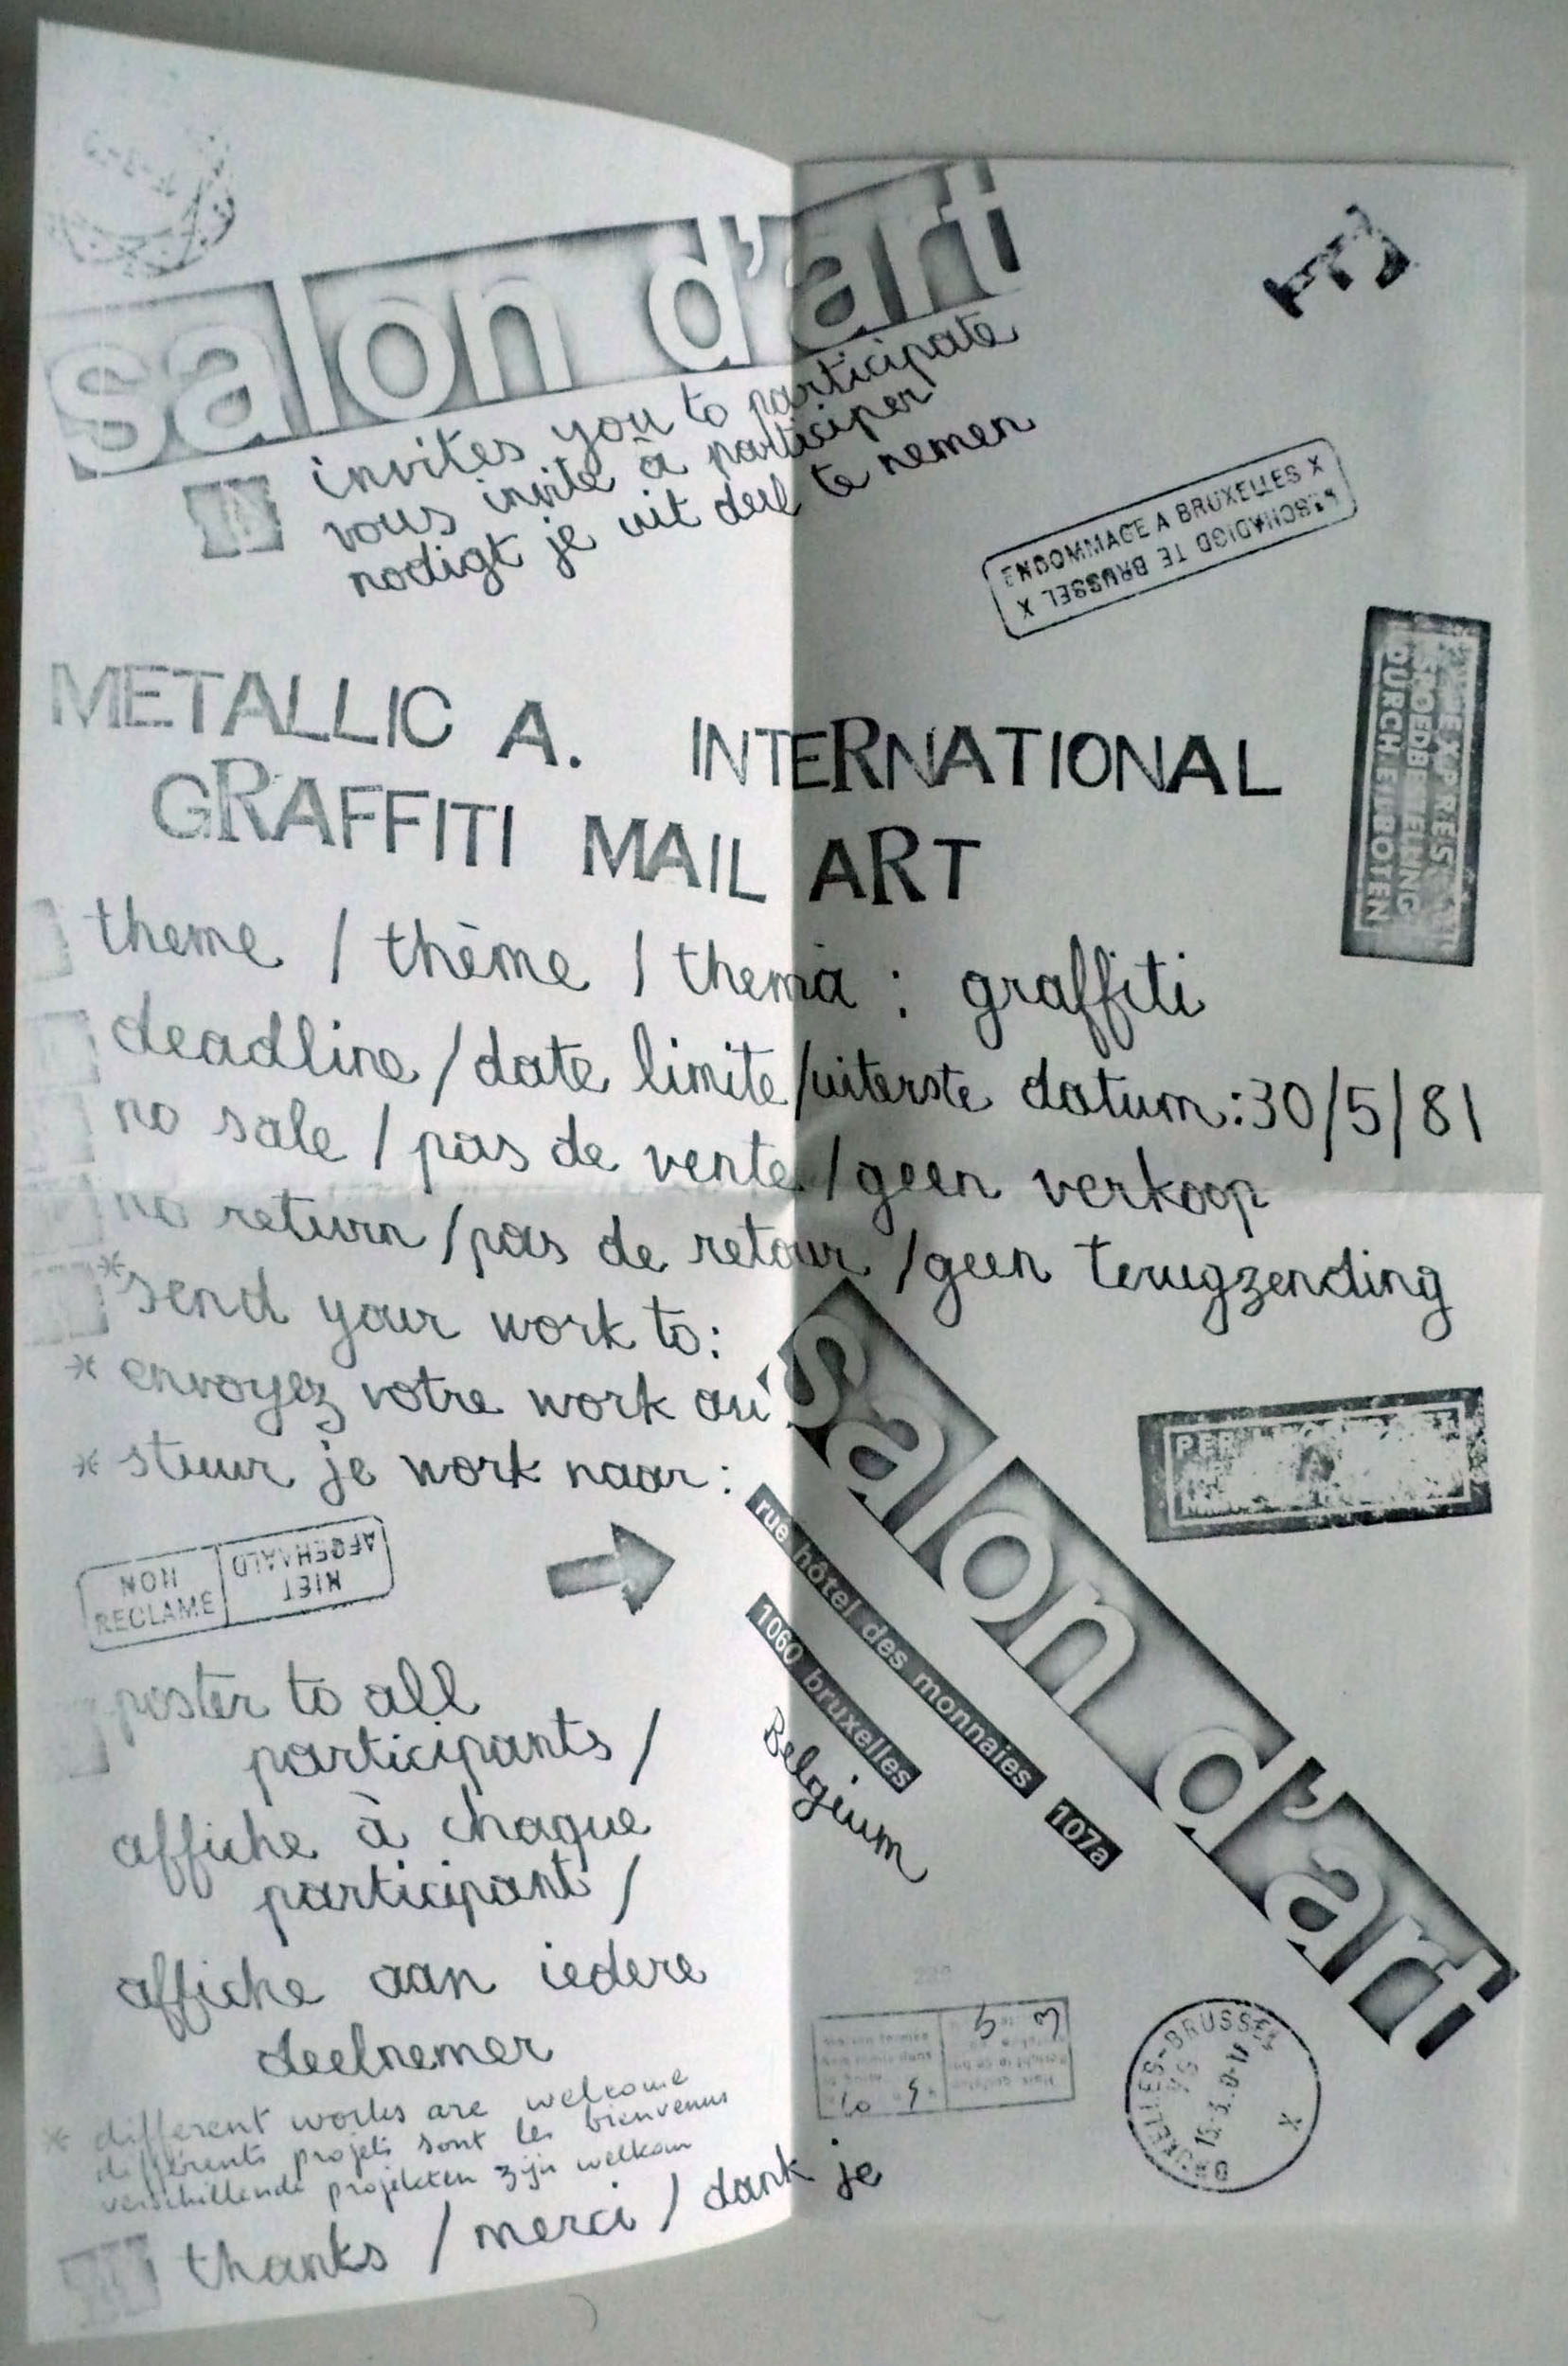 salon d'art
invites you to participate
vous invite à participer
nodigt je uit deel te nemen
ENDOMMAGE A BRUXELLES X
BESCHADIGD TE BRUSSEL X
EXPRES
SPOEDBESTELLING
DURCH EILBOTEN
METALLIC A. INTERNATIONAL
GRAFFITI MAIL ART
theme / thème / thema : graffiti
deadline / date limite / uiterste datum : 30/5/81
no sale / pas de vente / geen verkoop
no return / pas de retour / geen terugzending
* send your work to:
* envoyez votre work au
* stuur je work naar :
salon d'art
rue hôtel des monnaies 107a
1060 bruxelles
Belgium
PER
NON RECLAME
NIET AFGEHAALD
poster to all
participants /
affiche à chaque
participant /
affiche aan iedere
deelnemer
* different works are welcome
différents projets sont les bienvenus
verschillende projekten zijn welkom
thanks / merci / dank je
BRUXELLES-BRUSSEL
X